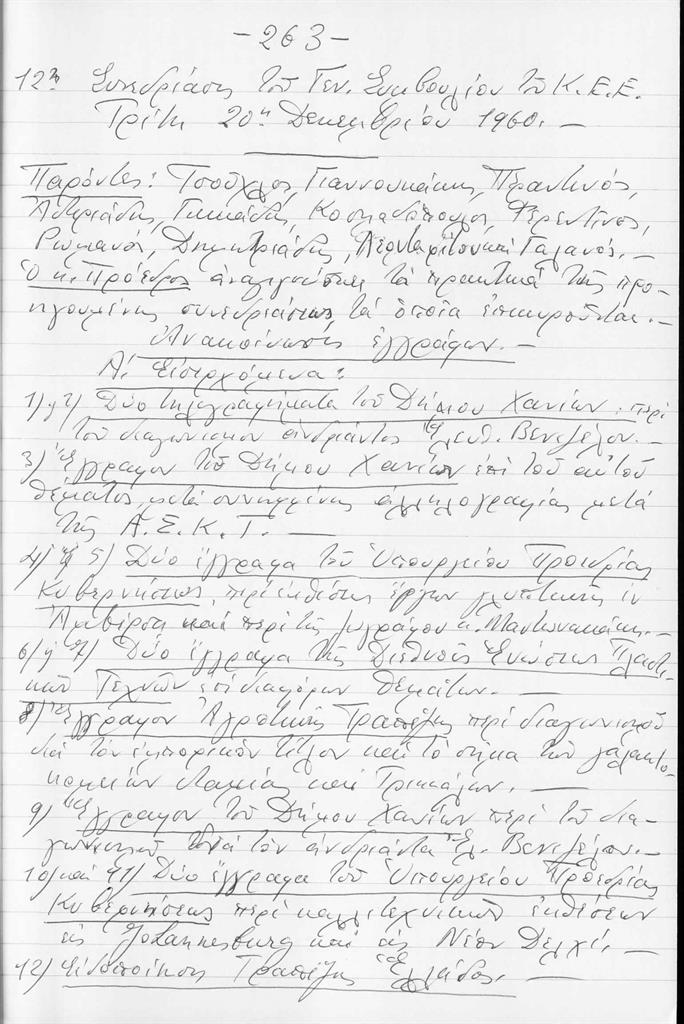 -263-
12η Συνεδρίασις τοῦ Γεν. Συμβουλίου τοῦ Κ.Ε.Ε.
Τρίτη 20ή Δεκεμβρίου 1960.—
Παρόντες: Τσούχλος, Γιαννουκάκης, Περαντινός,
Αστεριάδης, Γκικάδης, Κοσμαδόπουλος, Φερεντίνος,
Ρωμανός, Δημητριάδης, καὶ Γαλανός.—
Ὁ κ. Πρόεδρος ἀναγιγνώσκει τὰ πρακτικὰ τῆς προ-
ηγουμένης συνεδριάσεως τὰ ὁποῖα ἐπικυροῦνται.—
Ἀνακοινώσεις ἐγγράφων.—
Α. Εἰσερχόμενα:
1) ἡ 2) Δύο τηλεγραφήματα τοῦ Δήμου Χανίων περὶ
τοῦ διαγωνισμοῦ ἀνδριάντος Ἐλευθ. Βενιζέλου.—
3) Ἔγγραφον τοῦ Δήμου Χανίων ἐπὶ τοῦ αὐτοῦ
θέματος, μετὰ συνημμένης ἀλληλογραφίας μετὰ
τῆς Α.Σ.Κ.Τ.—
4) ἡ 5) Δύο ἔγγραφα τοῦ Ὑπουργείου Προεδρίας
Κυβερνήσεως, περὶ ἐκθέσεως ἔργων γλυπτικῆς ἐν
Ἀμβέρσῃ καὶ περὶ τῆς ζωγράφου κ. Μαντωνακάκη.—
6) ἡ 7) Δύο ἔγγραφα τῆς Διεθνοῦς Ἑνώσεως Πλαστι-
κῶν Τεχνῶν ἐπὶ διαφόρων θεμάτων.—
8) Ἔγγραφον Ἀγροτικῆς Τραπέζης περὶ διαγωνισμοῦ
διὰ τὸν ἐμπορικὸν τίτλον καὶ τὸ σῆμα τῶν γαλακτο-
κομειῶν Λαμίας καὶ Τρικάλων.—
9) Ἔγγραφον τοῦ Δήμου Χανίων περὶ τοῦ δια-
γωνισμοῦ διὰ τὸν ἀνδριάντα Ἐλ. Βενιζέλου.—
10) καὶ 11) Δύο ἔγγραφα τοῦ Ὑπουργείου Προεδρίας
Κυβερνήσεως περὶ καλλιτεχνικῶν ἐκθέσεων
εἰς Johannesburg καὶ εἰς Νέον Δελχί.—
12) Εἰδοποίησις Τραπέζης Ἑλλάδος.—